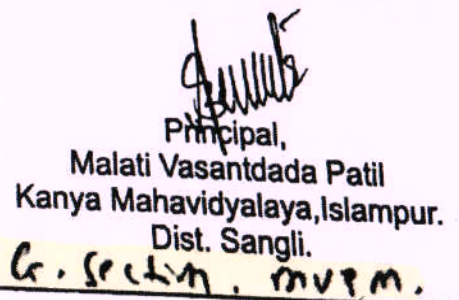 Principal,
Malati Vasantdada Patil
Kanya Mahavidyalaya,Islampur.
Dist. Sangli.
section.